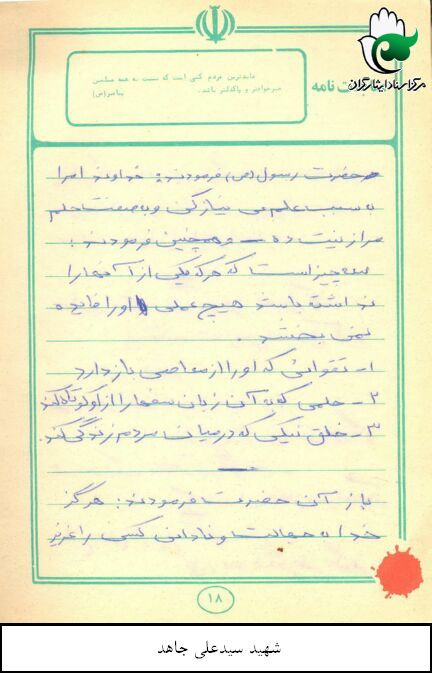 مرکز اسناد ایثارگران
نامه
عابدترین مردم کسی است که نسبت به همه مسلمین
خیرخواهتر و پاکدلتر باشد.
پیامبر(ص)
حضرت رسول (ص) فرمودند: خداوندا مرا
به سبب علم بی نیاز کن و به صفت حلم
مرا زینت ده ـ و همچنین فرمودند:
سه چیز است که هر که یکی از آنها را
نداشته باشد هیچ عملی او را فایده
نمی بخشد.
۱ـ تقوائی که او را از معاصی باز دارد
۲ـ حلمی که به آن زبان سفها را از او کوتاه کند
۳ـ خلق نیکی که در میان مردم زندگی کند.
باز آن حضرت فرمودند: هرگز
خدا به جهالت و نادانی کسی را عزیز
۱۸
شهید سیدعلی جاهد